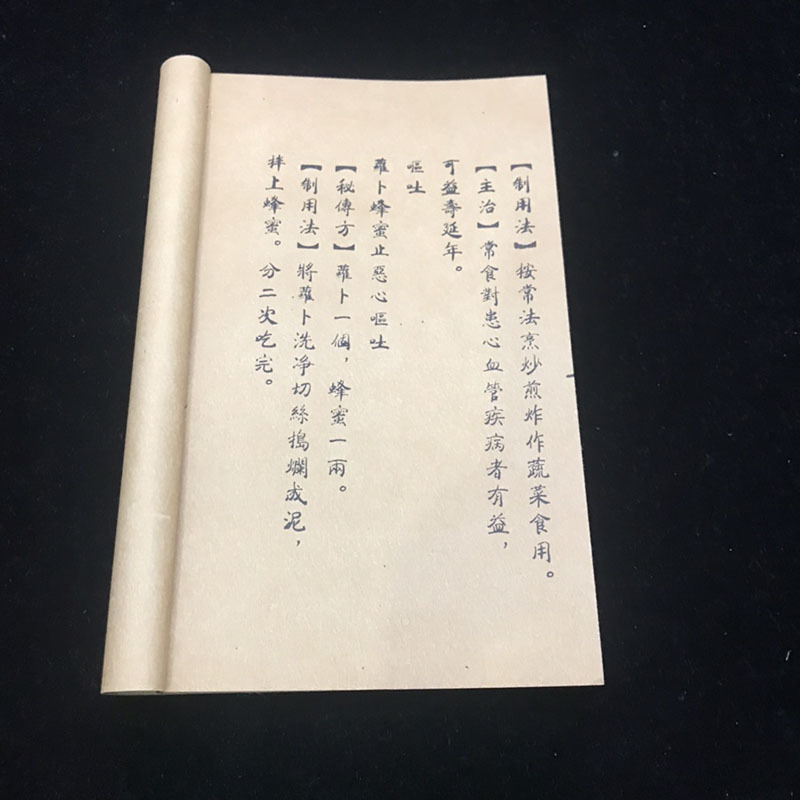 【制用法】按常法烹炒煎炸作蔬菜食用。
【主治】常食對患心血管疾病者有益，
可益壽延年。
嘔吐
蘿卜蜂蜜止惡心嘔吐
【秘傳方】蘿卜一個，蜂蜜一兩。
【制用法】將蘿卜洗净切絲搗爛成泥，
拌上蜂蜜。分二次吃完。